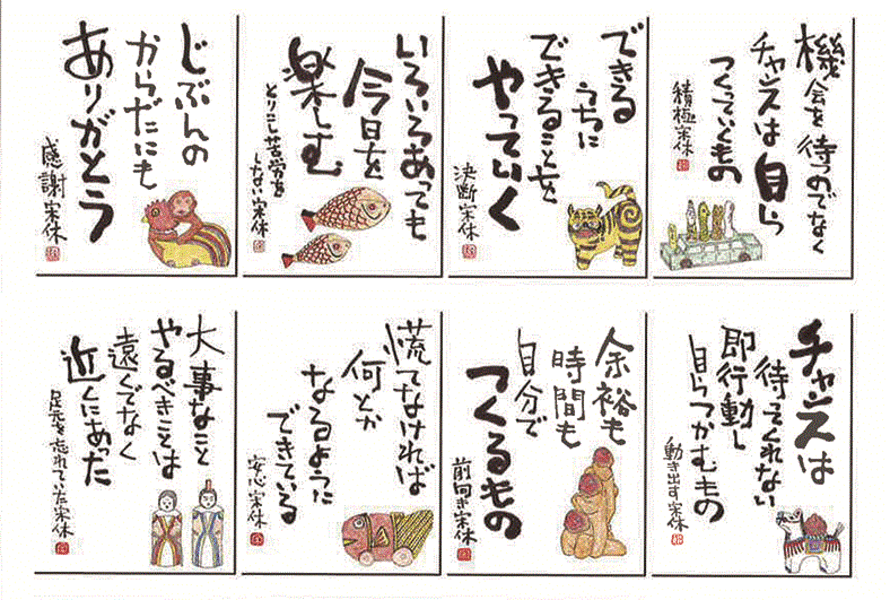 機会を待つのでなく
チャンスは自ら
つくっていくもの
積極 宋休
できる
うちに
できることを
やっていく
決断 宋休
いろいろあっても
今日を
楽しむ
とりこし苦労を
しない 宋休
じぶんの
からだにも
ありがとう
感謝 宋休
チャンスは
待ってくれない
即行動し
自らつかむもの
動き出す 宋休
余裕も
時間も
自分で
つくるもの
前向き 宋休
慌てなければ
何とか
なるように
できている
安心 宋休
大事なこと
やるべきことは
遠くでなく
近くにあった
足元を忘れていた 宋休